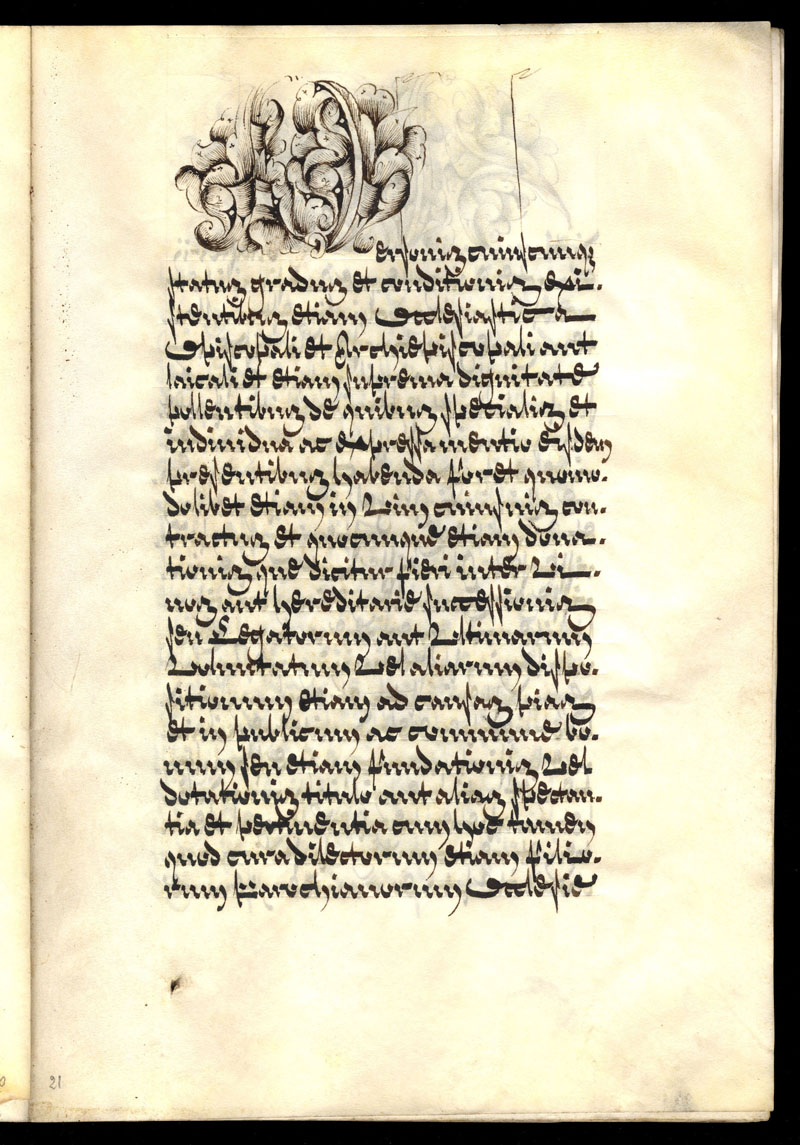 Personis cuiuscunq3
status gradus et conditionis exi-
stentibus etiam Ecclesiastica
Episcopali et Archiepiscopali aut
laicali et etiam suprema dignitate
pollentibus de quibus specialis et
individua ac expressa mentio eisdem
presentibus habenda foret quomo-
dolibet etiam in Vim cuiusuis con-
tractus et quocunque etiam dona-
tionis que dicitur fieri inter Vi-
uos aut hereditarie successionis
seu Legatorum aut Vltimarum
Voluntatum Vel aliarum dispo-
sitionum etiam ad causas pias
et in publicum ac commune bo-
num seu etiam fundationis Vel
dotationis titulo aut alias spectan-
tia et pertinentia cum hoc tamen
quod cura dilectorum etiam filio-
rum Parochianorum Ecclesie
21